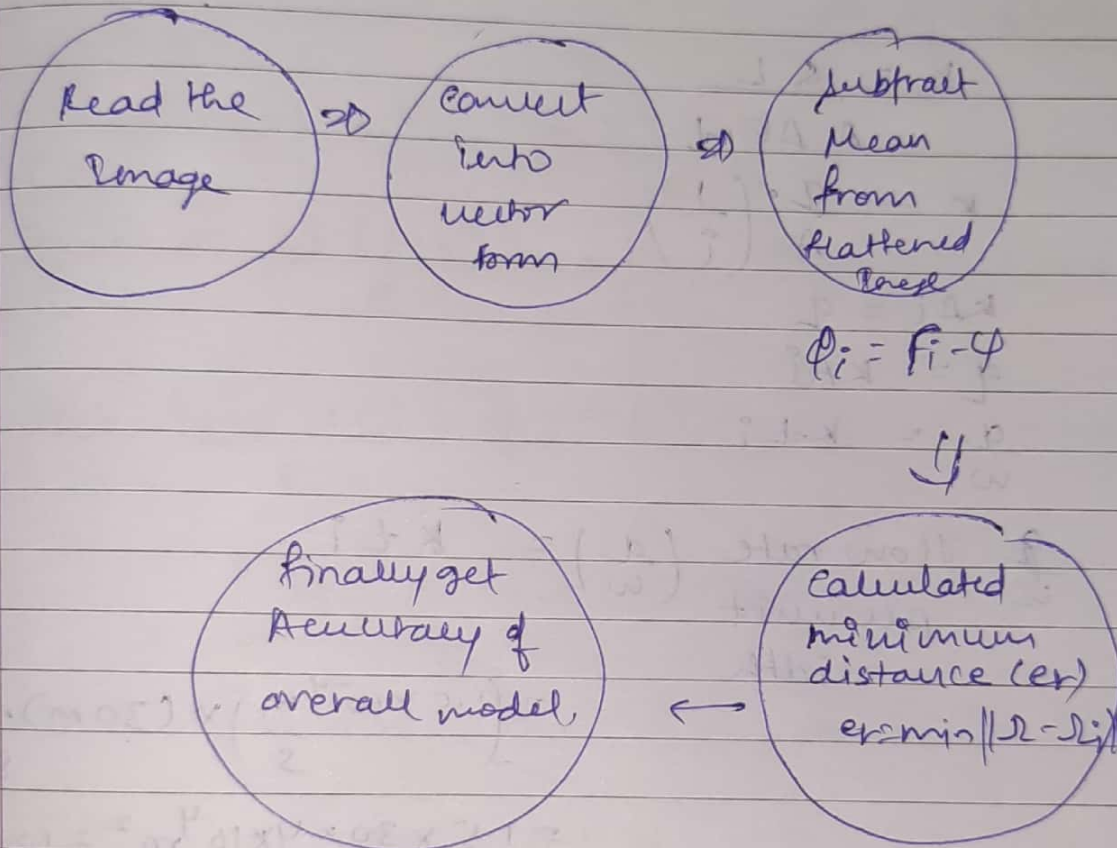 Read the
Image
⇒
Convert
into
vector
form
⇒
Subtract
Mean
from
flattened
φi = Γi - ψ
⇓
Calculated
minimum
distance (er)
er = min||Ω - Ωi||
↔
finally get
Accuracy of
overall model.